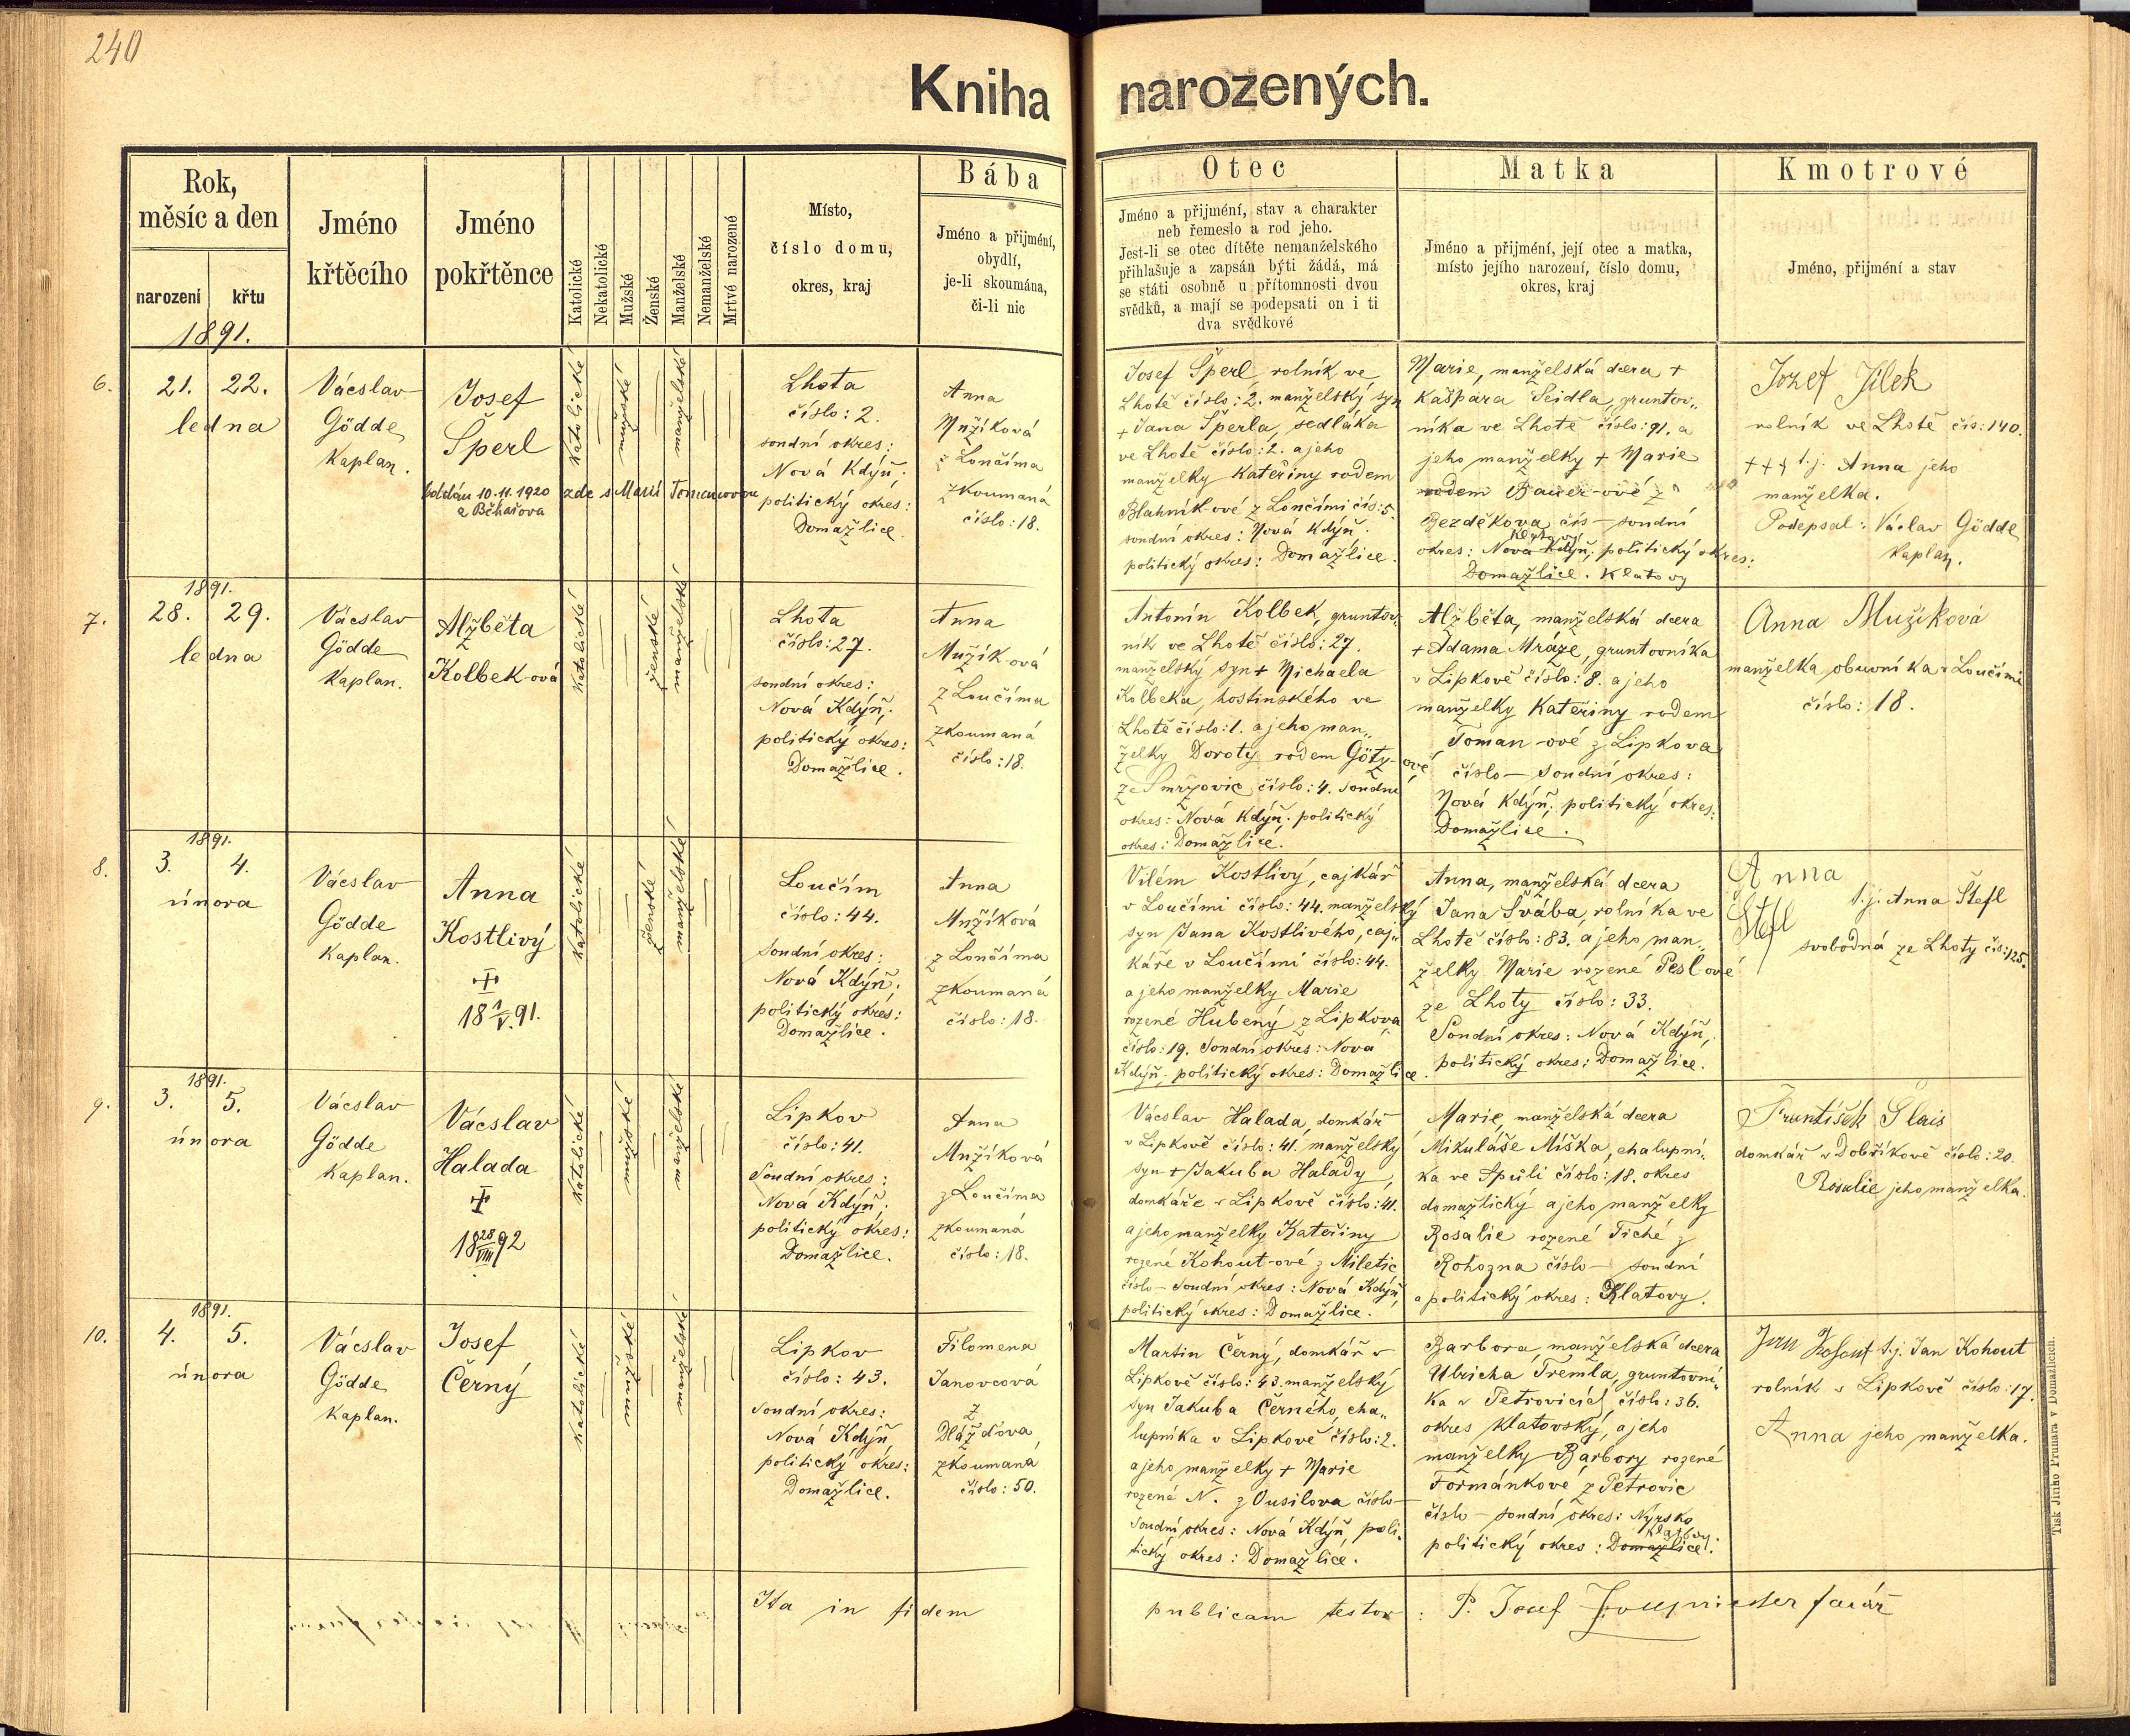 240
Kniha narozených.
Rok, měsíc a den
narození
křtu
1891.
Jméno křtěcího
Jméno pokřtěnce
Katolické
Nekatolické
Mužské
Ženské
Manželské
Nemanželské
Mrtvé narozené
Místo,
číslo domu,
okres, kraj
Bába
Jméno a přijmění,
obydlí,
je-li skoumána,
či-li nic
Otec
Jméno a přijmění, stav a charakter
neb řemeslo a rod jeho.
Jest-li se otec dítěte nemanželského
přihlašuje a zapsán býti žádá, má
se státi osobně u přítomnosti dvou
svědků, a mají se podepsati on i ti
dva svědkové
Matka
Jméno a přijmění, její otec a matka,
místo jejího narození, číslo domu,
okres, kraj
Kmotrové
Jméno, přijmění a stav
6.
21. 22.
ledna
Vácslav
Gödde
Kaplan.
Josef
Šperl
oddán 10.11.1920 zde s Marií Tomanovou
z Běhařova
katolické
mužské
manželské
Lhota
číslo: 2.
soudní okres:
Nová Kdýň;
politický okres:
Domažlice.
Anna
Mužíková
z Loučíma
zkoumaná
číslo: 18.
Josef Šperl, rolník ve
Lhotě číslo: 2. manželský syn
+ Jana Šperla, sedláka
ve Lhotě číslo: 2. a jeho
manželky Kateřiny rodem
Blahník-ové z Loučimi čís: 5.
soudní okres: Nová Kdýň.
politický okres: Domažlice.
Marie, manželská dcera +
Kašpara Seidla, gruntov„
níka ve Lhotě číslo: 91. a
jeho manželky + Marie
rodem Bauer-ové z
Bezděkova čís — soudní
Klatovy
okres: Nová Kdýň; politický okres:
Domažlice. Klatovy
Jozef Jílek
rolník ve Lhotě čís: 140.
+++ t.j. Anna jeho
manželka.
Podepsal: Václav Gödde
kaplan.
7.
1891.
28. 29.
ledna
Vácslav
Gödde
Kaplan.
Alžběta
Kolbek-ová
katolické
ženské
manželské
Lhota
číslo: 27.
soudní okres:
Nová Kdýň;
politický okres:
Domažlice.
Anna
Mužík-ová
z Loučíma
zkoumaná
číslo: 18.
Antonín Kolbek, gruntov„
ník ve Lhotě číslo: 27.
manželský syn + Michaela
Kolbeka, hostinského ve
Lhotě číslo: 1. a jeho man„
želky Doroty rodem Götz-ové
ze Smržovic, číslo: 4. soudní
okres: Nová Kdýň; politický
okres: Domažlice.
Alžběta, manželská dcera
+ Adama Mráze, gruntovníka
v Lipkově číslo: 8. a jeho
manželky Kateřiny rodem
Toman-ové z Lipkova
číslo — soudní okres:
Nová Kdýň; politický okres:
Domažlice.
Anna Mužíková
manželka obuvníka v Loučimi
číslo: 18.
8.
1891.
3. 4.
února
Vácslav
Gödde
Kaplan.
Anna
Kostlivý
+
18 1/V. 91.
katolické
ženské
manželské
Loučím
číslo: 44.
soudní okres:
Nová Kdýň;
politický okres:
Domažlice.
Anna
Mužíková
z Loučíma
zkoumaná
číslo: 18.
Vilém Kostlivý, cajkář
v Loučimi číslo: 44. manželský
syn Jana Kostlivého, caj„
káře v Loučimi číslo: 44.
a jeho manželky Marie
rozené Hubený z Lipkova
číslo: 19. soudní okres: Nová
Kdýň; politický okres: Domažlice.
Anna, manželská dcera
Jana Švába, rolníka ve
Lhotě číslo: 83. a jeho man„
želky Marie rozené Peslové
ze Lhoty číslo: 33.
Soudní okres: Nová Kdýň,
politický okres: Domažlice.
Anna
Štefl
t.j. Anna Štefl
svobodná ze Lhoty čís: 125.
9.
1891.
3. 5.
února
Vácslav
Gödde
Kaplan.
Vácslav
Halada
+
18 28/VIII 92
katolické
mužské
manželské
Lipkov
číslo: 41.
Soudní okres:
Nová Kdýň;
politický okres:
Domažlice.
Anna
Mužíková
z Loučíma
zkoumaná
číslo: 18.
Vácslav Halada, domkář
v Lipkově číslo: 41. manželský
syn + Jakuba Halady,
domkáře v Lipkově číslo: 41.
a jeho manželky Kateřiny
rozené Kohout-ové z Miletic
číslo — soudní okres: Nová Kdýň,
politický okres: Domažlice.
Marie, manželská dcera
Mikuláše Míška, chalupní„
ka ve Spůli číslo: 18. okres
domažlický a jeho manželky
Rosalie rozené Tiché z
Rohozna číslo — soudní
a politický okres: Klatovy.
František Slais
domkář v Dobříkově číslo: 20.
Rosalie jeho manželka.
10.
1891.
4. 5.
února
Vácslav
Gödde
Kaplan.
Josef
Černý
katolické
mužské
manželské
Lipkov
číslo: 43.
soudní okres:
Nová Kdýň
politický okres:
Domažlice.
Filomena
Janovcová
z
Dlážďova
zkoumaná
číslo: 50.
Martin Černý, domkář v
Lipkově číslo: 43. manželský
syn Jakuba Černého, cha„
lupníka v Lipkově číslo: 2.
a jeho manželky + Marie
rozené N. z Ousilova číslo —
soudní okres: Nová Kdýň, poli„
tický okres: Domažlice.
Barbora, manželská dcera
Ulricha Tremla, gruntovní„
ka v Petrovicích, číslo: 36.
okres Klatovský, a jeho
manželky Barbory rozené
Formánkové z Petrovic
číslo — soudní okres: Nyrsko
Klatovy.
politický okres: Domažlice.
Jan Kohout t.j. Jan Kohout
rolník v Lipkově číslo: 17.
Anna jeho manželka.
Ita in fidem publicam testor: P. Josef farář
Tisk Jiřího Prunara v Domažlicích.